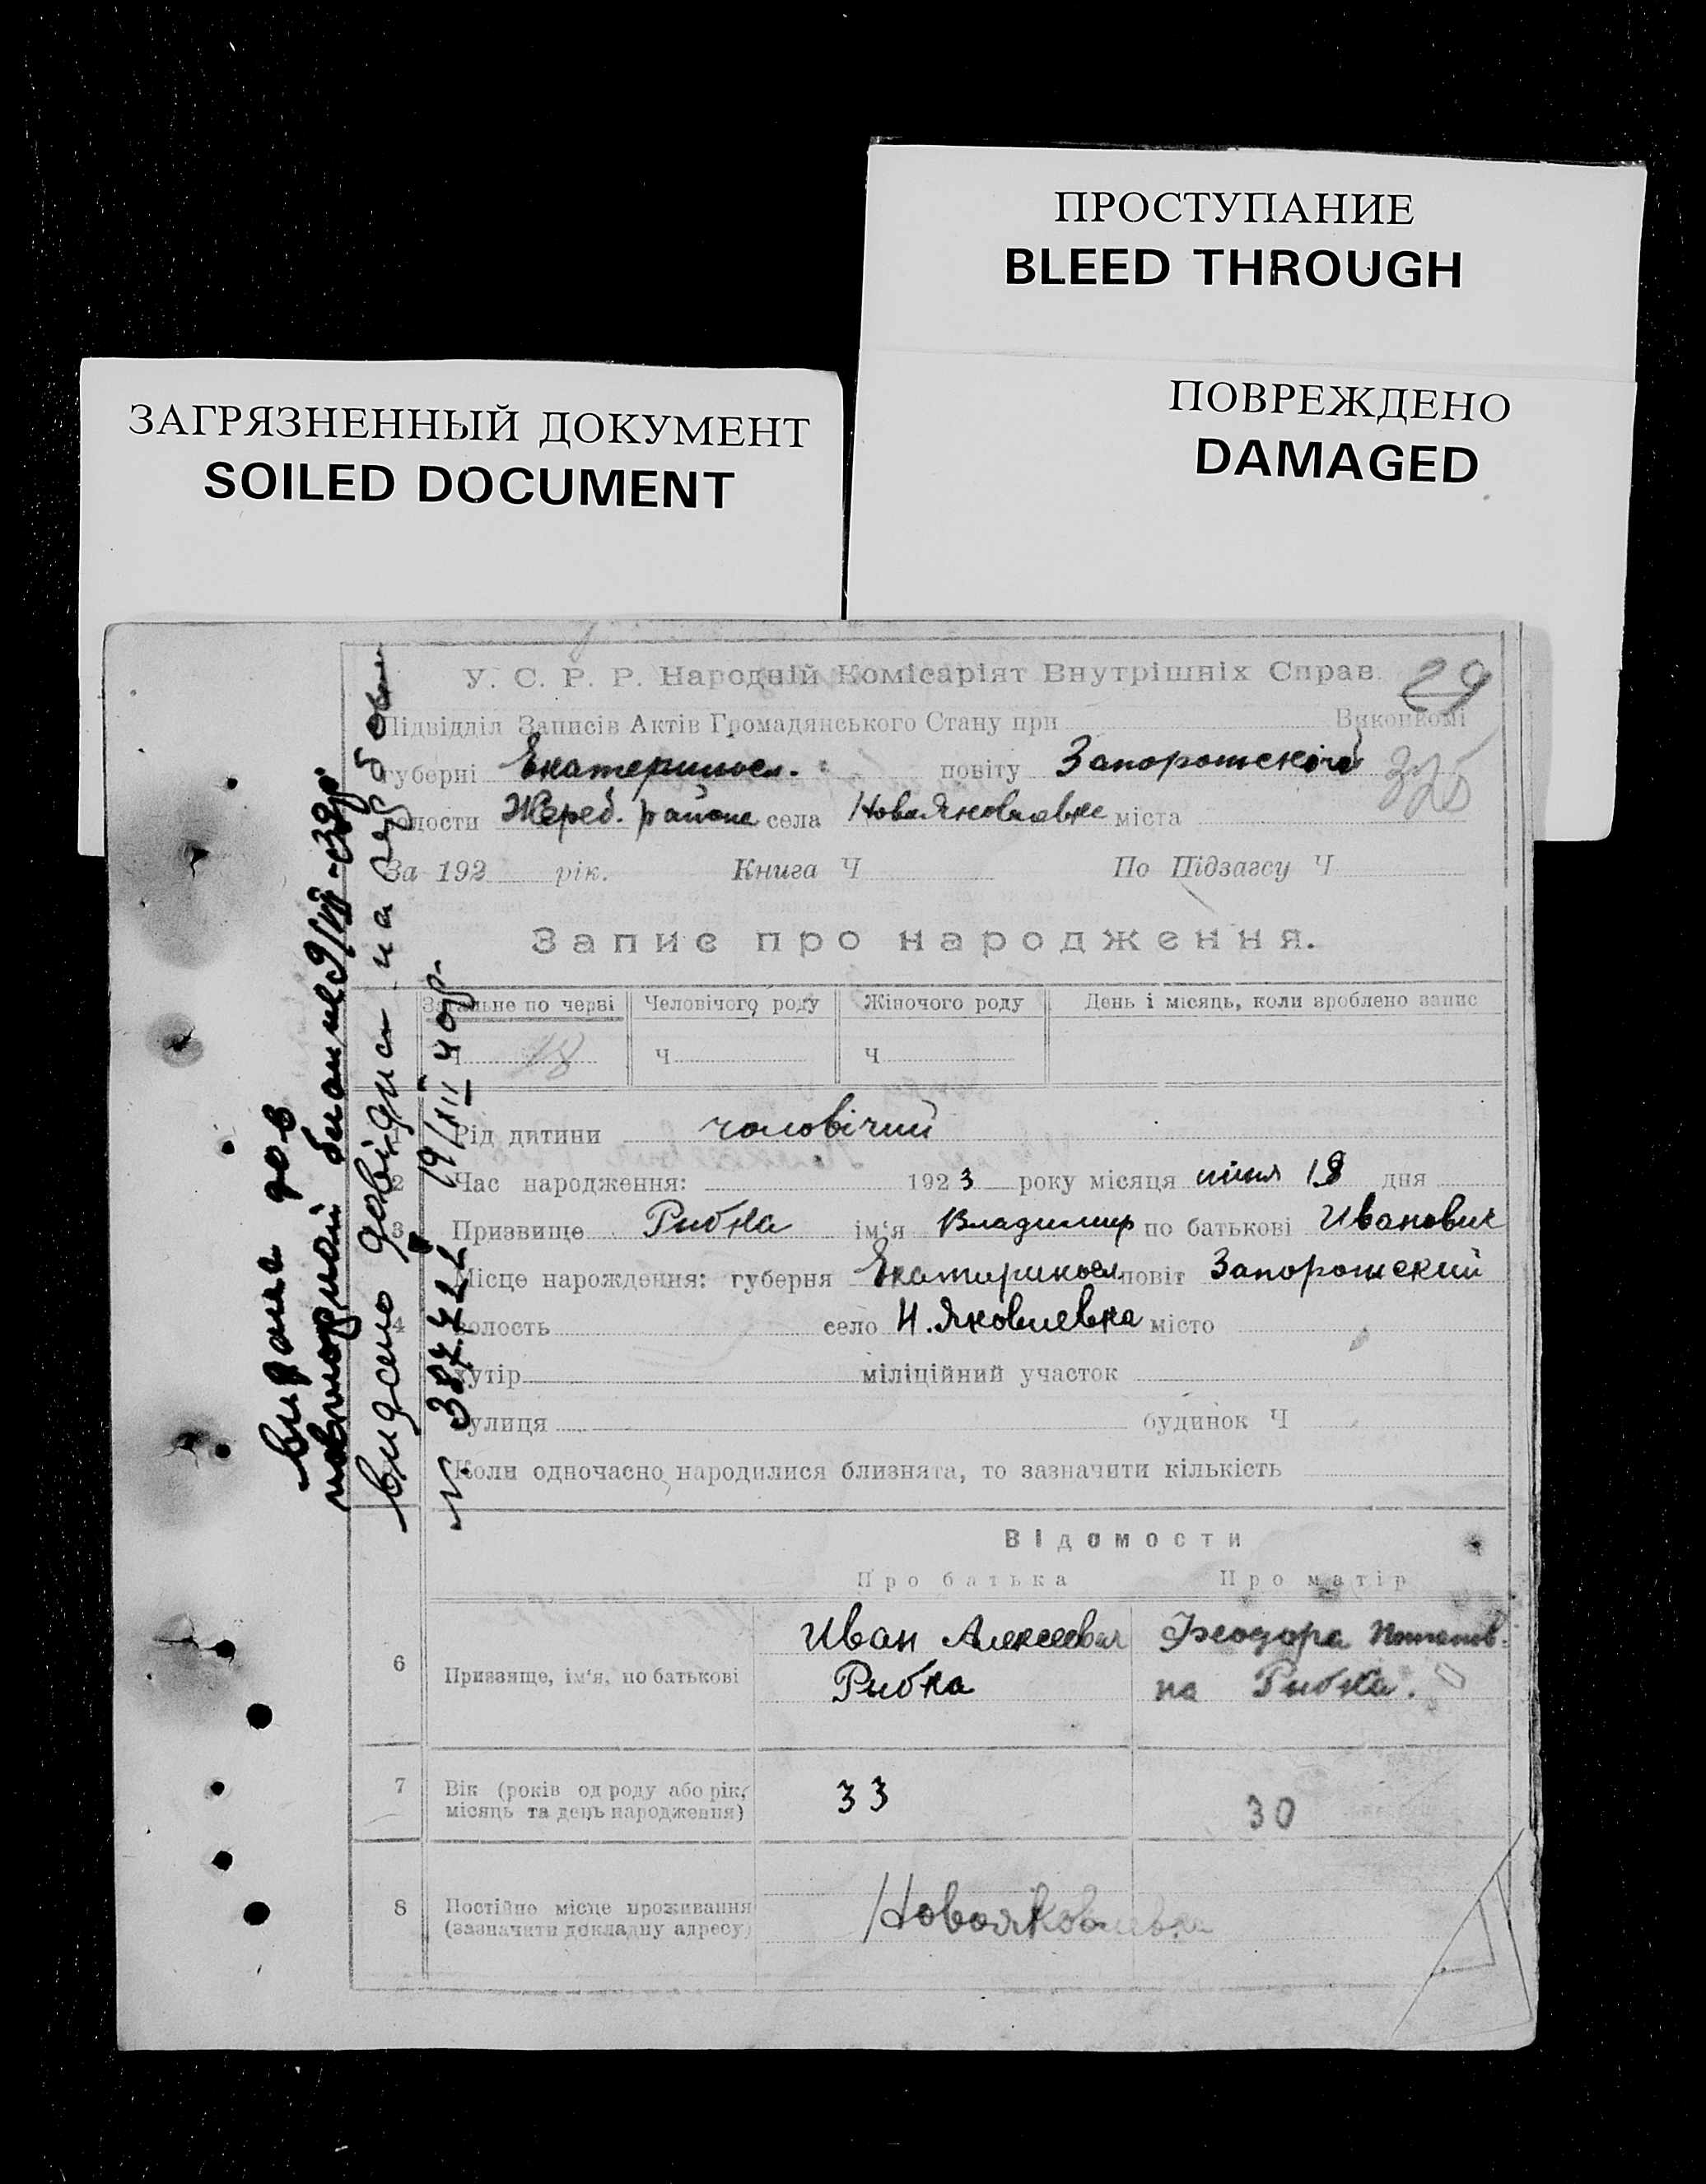 ПРОСТУПАНИЕ
BLEED THROUGH
ПОВРЕЖДЕНО
DAMAGED
ЗАГРЯЗНЕННЫЙ ДОКУМЕНТ
SOILED DOCUMENT
У. С. Р. Р. Народній Комісаріят Внутрішніх Справ. 29
Підвідділ Записів Актів Громадянського Стану при Виконкомі
губерні Екатериносл. повіту Запорожской 325
волости Жереб. района села НоваЯковлевке міста
За 192 рік. Книга Ч По Підзагсу Ч
Запис про народження.
Загальне по черві Человічого роду Жіночого роду День і місяць, коли вроблено запис
Ч 18 Ч Ч
1 Рід дитини чоловічий
2 Час народження: 1923 року місяця июня 18 дня
3 Призвище Рибка ім'я Владимир по батькові Иванович
Місце народження: губерня Екатериносл повіт Запорожский
4 волость село Н. Яковлевка місто
хутір міліційний участок
улиця будинок Ч
Коли одночасно народилися близнята, то зазначити кількість
Відомости
Про батька Про матір
6 Призвище, ім'я, по батькові
Иван Алексеевич
Рибка
Феодора
на Рибка.
7 Вік (років од роду або рік,
місяць та день народження)
33 30
8 Постійне місце проживання
(зазначити докладну адресу)
Новояковлевка
видана дов
повторний бланк 9/VII-39р.
видано довідка на
N. 19/III 40р.